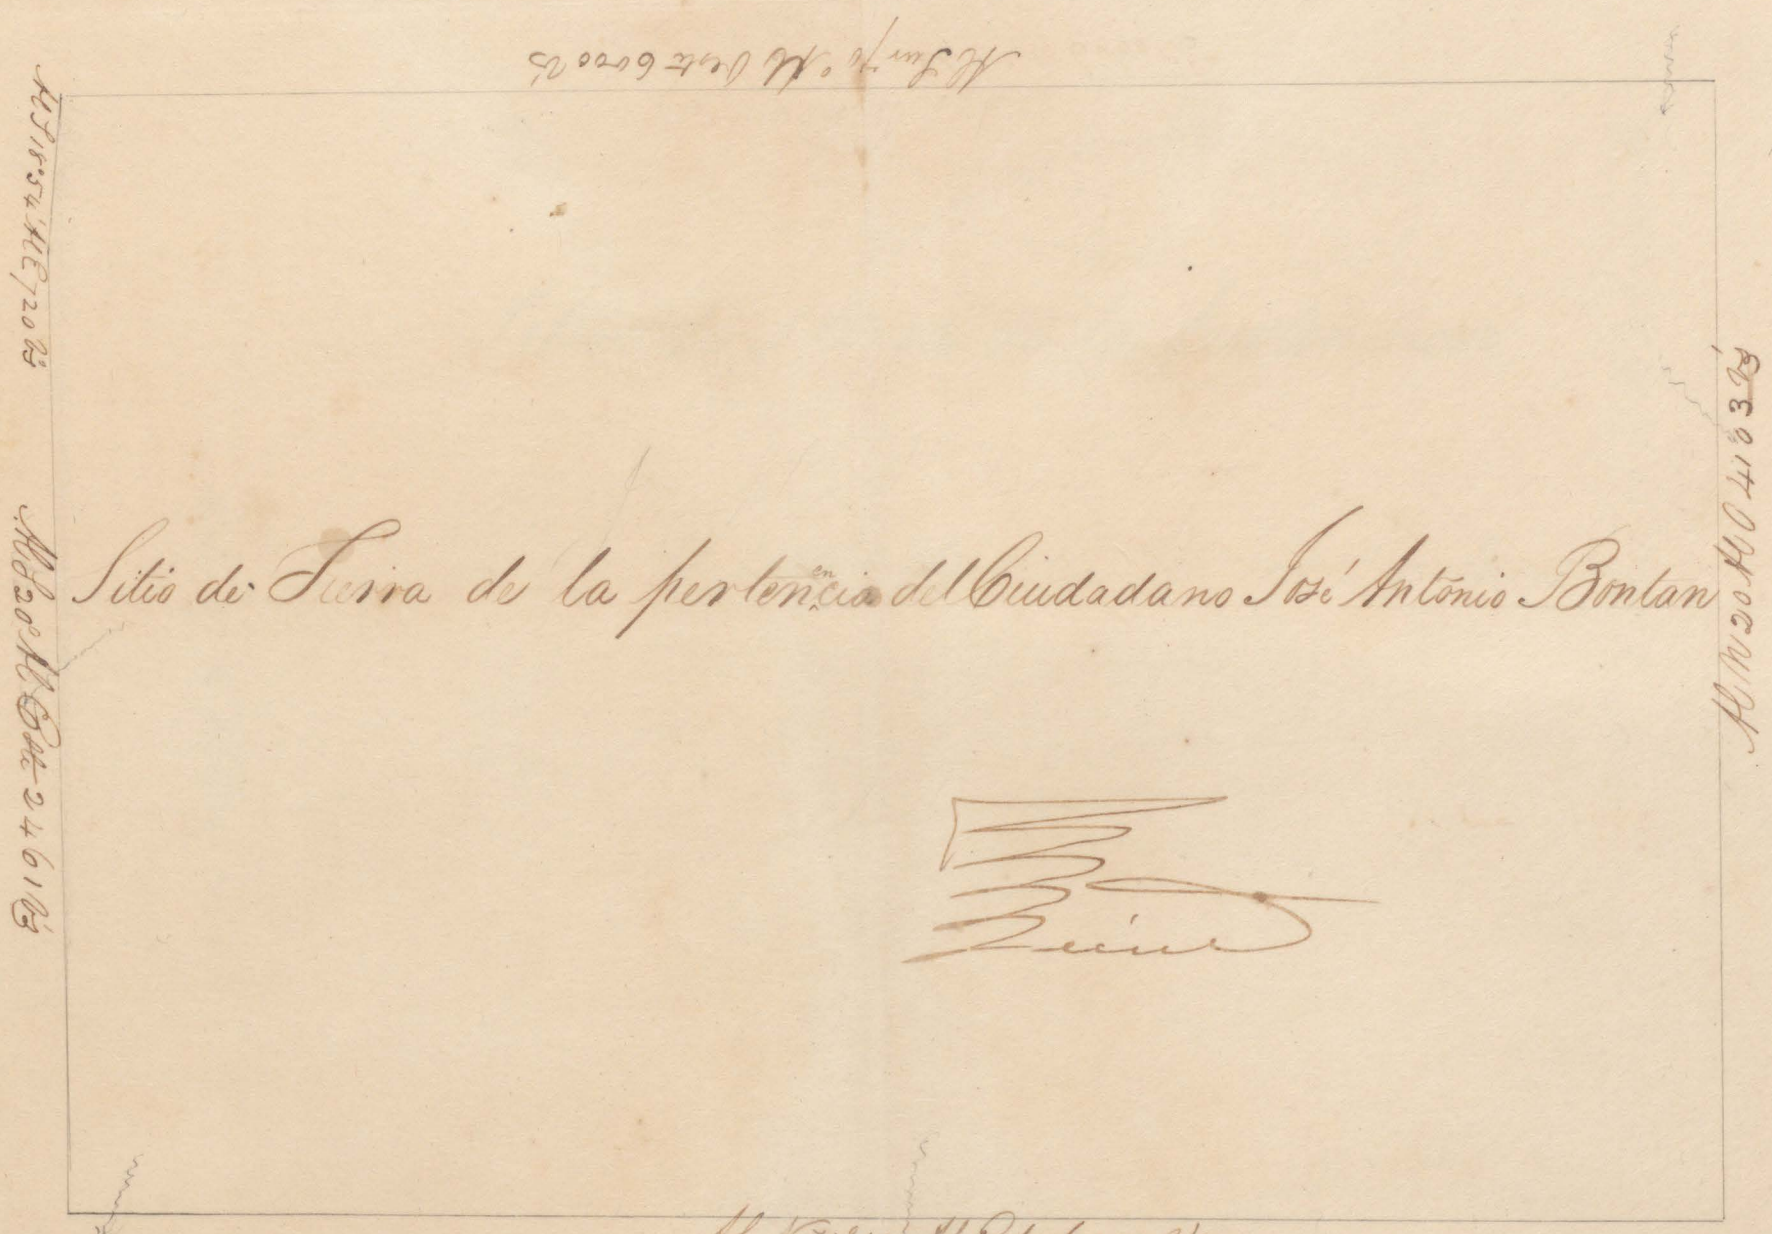 Al Sur 70° Al Oeste 6000 Vs
Al S 18° 54' Al E 720 Vs
Al S 20° Al Este 2461 Vs
Sitio de Tierra de la pertenencia del Ciudadano José Antonio Bontan
Al N 20 Al O 4103 Vs